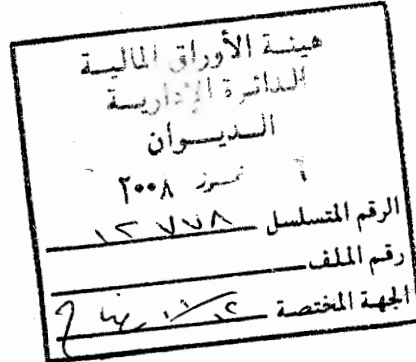 هيئة الأوراق المالية
الدائرة الإدارية
الديوان
٦ تموز ٢٠٠٨
الرقم المتسلسل ١٢٧٧٨
رقم الملف
الجهة المختصة